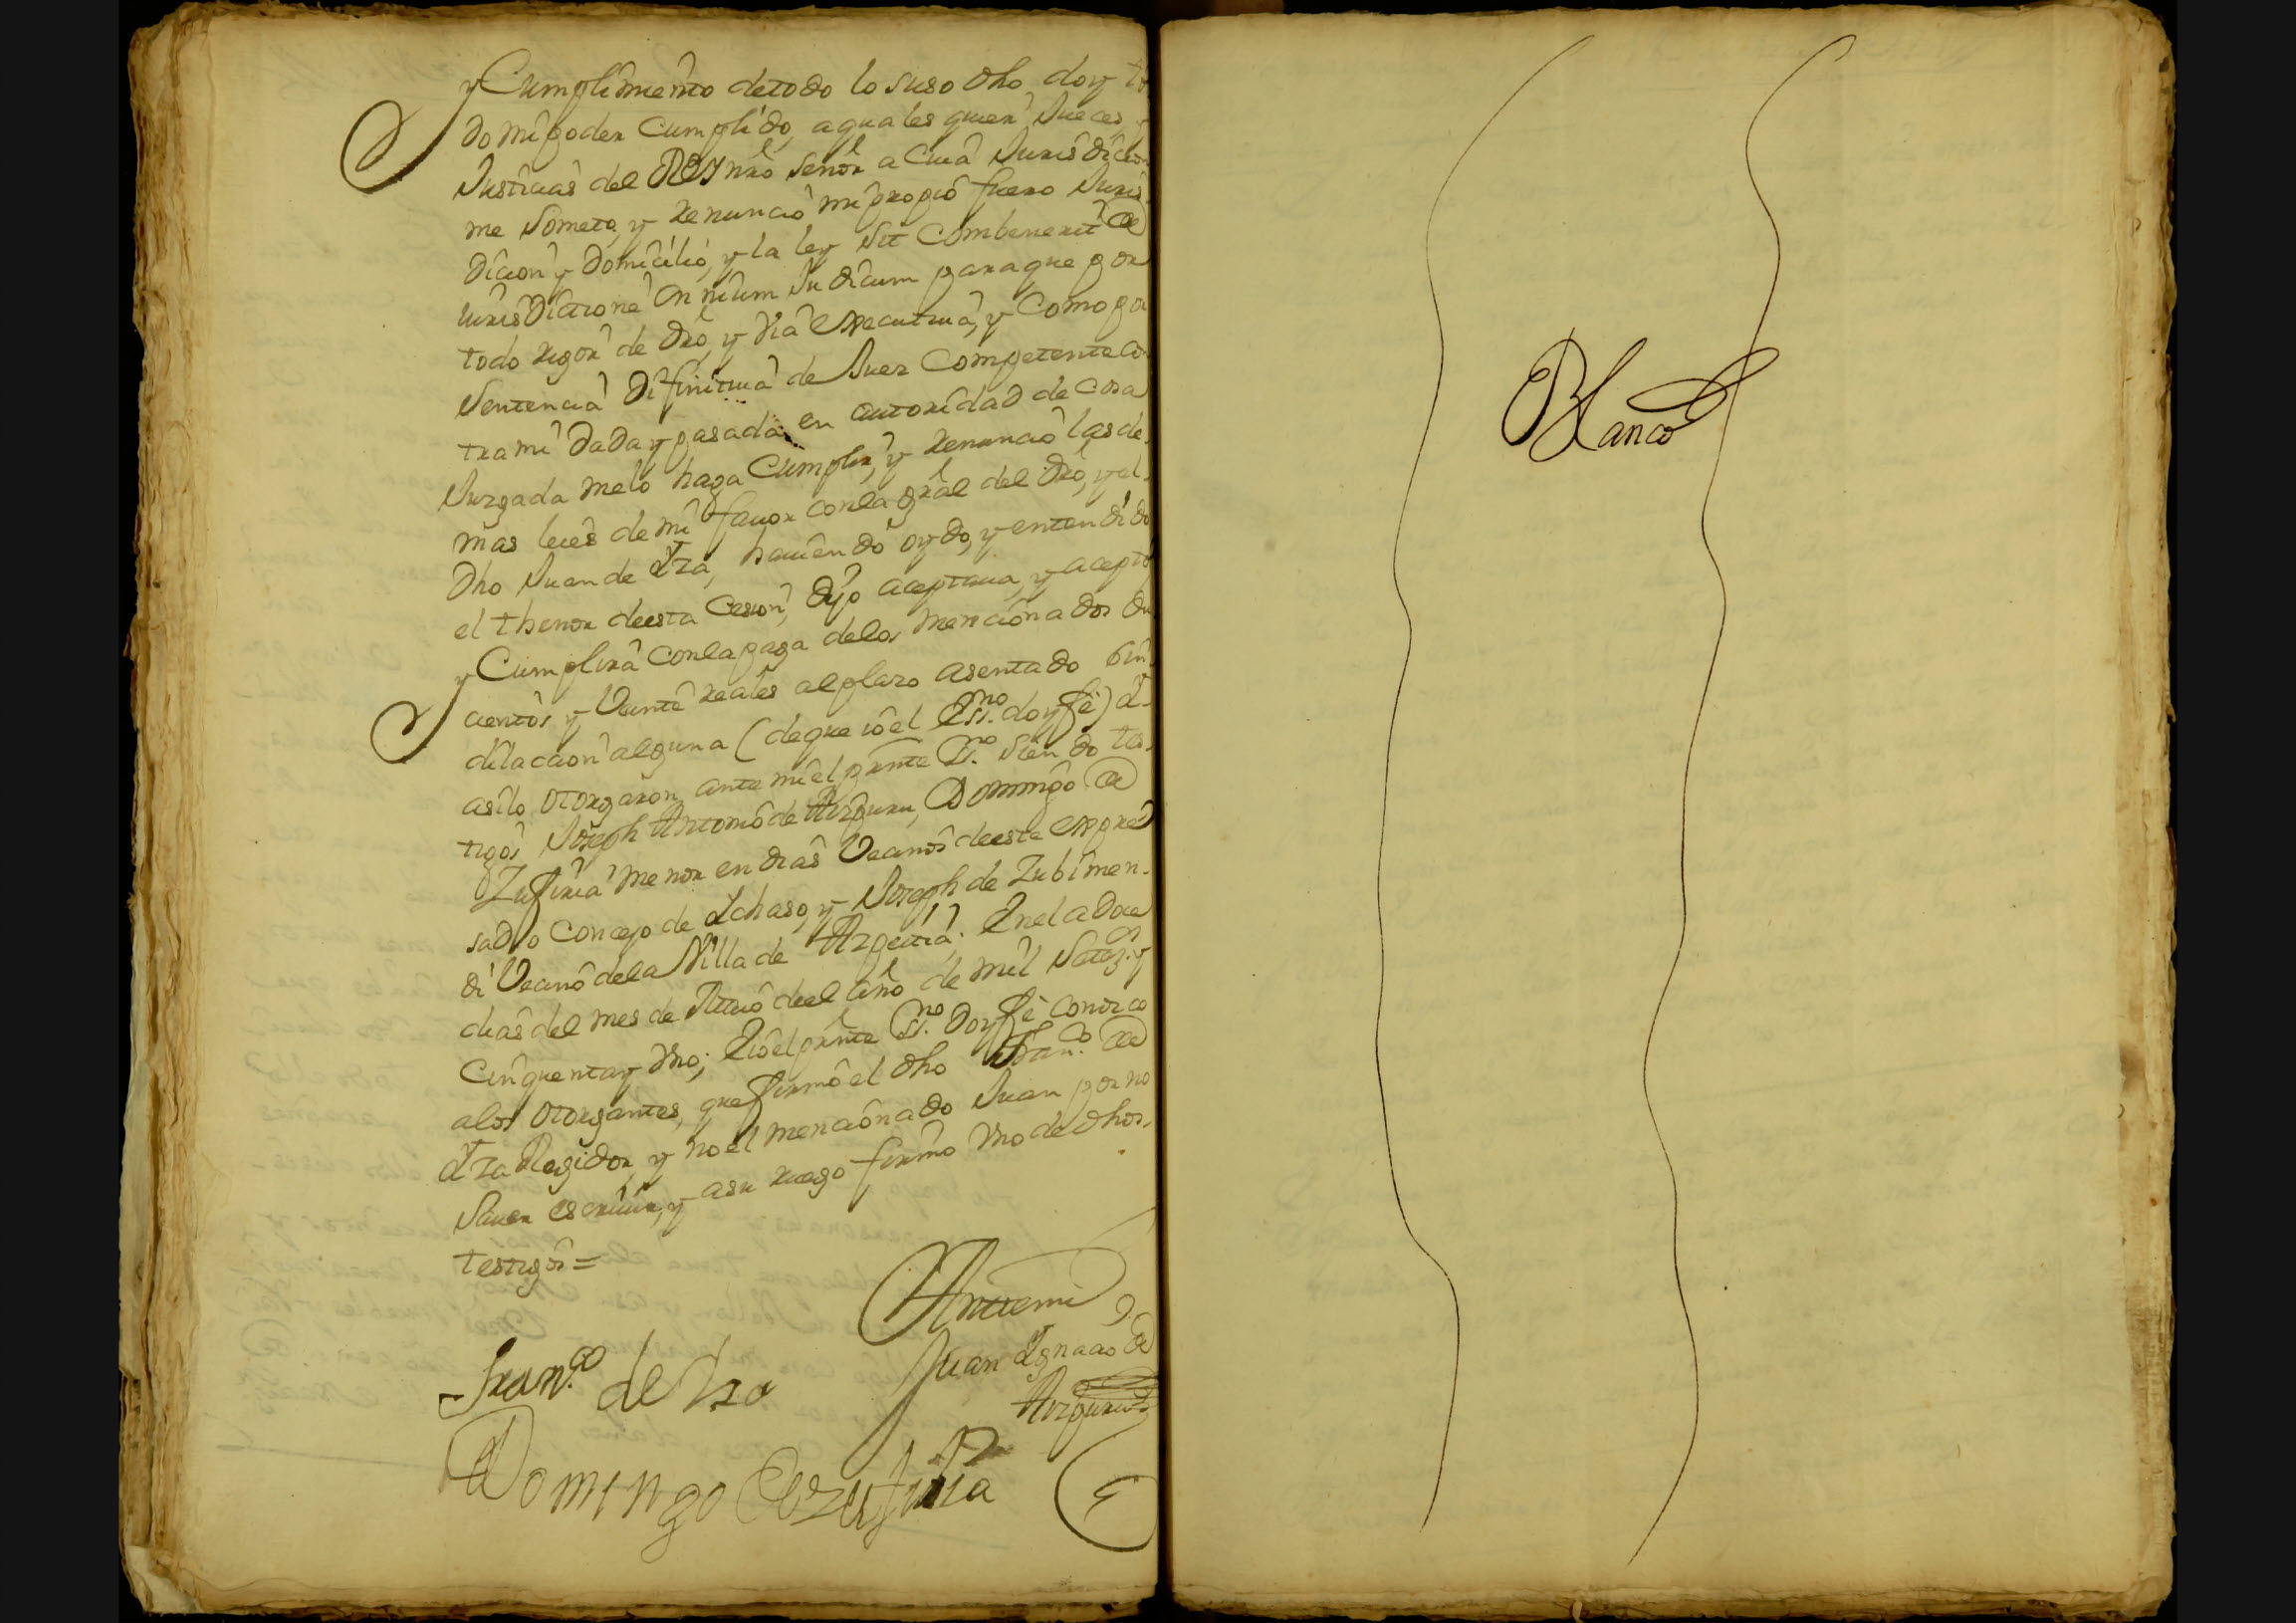 y Cumplimiento detodo lo suso dho, doy to
do mi poder Cumplido, aquales quier Jueces, y
Justicias del Rey nrô Señor a Cuia Jurisdicion
me Someto, y renunciò mi propio fuero Juris
dicion y domicilio, y la ley Sit Combenerit de
iurisdictione Omnium Judicum para que por
todo rigor de drô, y via executiua, y Como por
Sentencia difinitiua de Juez Competente con
tra mi dada y pasada en autoridad de Cosa
Juzgada me lo haga Cumplir, y renunciò las de
mas leies de mi fauor con la grâl del drô, y el
dho Juan de Yza, hauiendo oydo, y entendido
el thenor deesta Cesion, dijo aceptaua, y aceptò
y Cumplirà con la paga delos mencionados du
cientos y Veinte reales al plazo asentado sin
dilacion alguna (de que iò el Essno. doy fè) Y
asilo otorgaron ante mi el presnte Sno. Siendo tes
tigos Joseph Antonio de Aizpuru, Domingo de
Zufiria menor en dias Vecinos deesta expre
sado Concejo de Ychaso, y Joseph de Zubimen
di Vecino dela Villa de Azpeitia; En el a doce
dias del mes de deel año de mil Setezs. y
Cinquenta y Vno; E iò el presnte Sno. doy fè Conozco
alos otorgantes, que firmò el dho Franco. de
Yza Regidor, y no el mencionado Juan por no
Sauer escriuir, y asu ruego firmo Vno de dhos
testigos =
Antemi
Franco. de Iza
Juan Ygnacio de
Aizpuru
Domingo de zufiria
Blanco